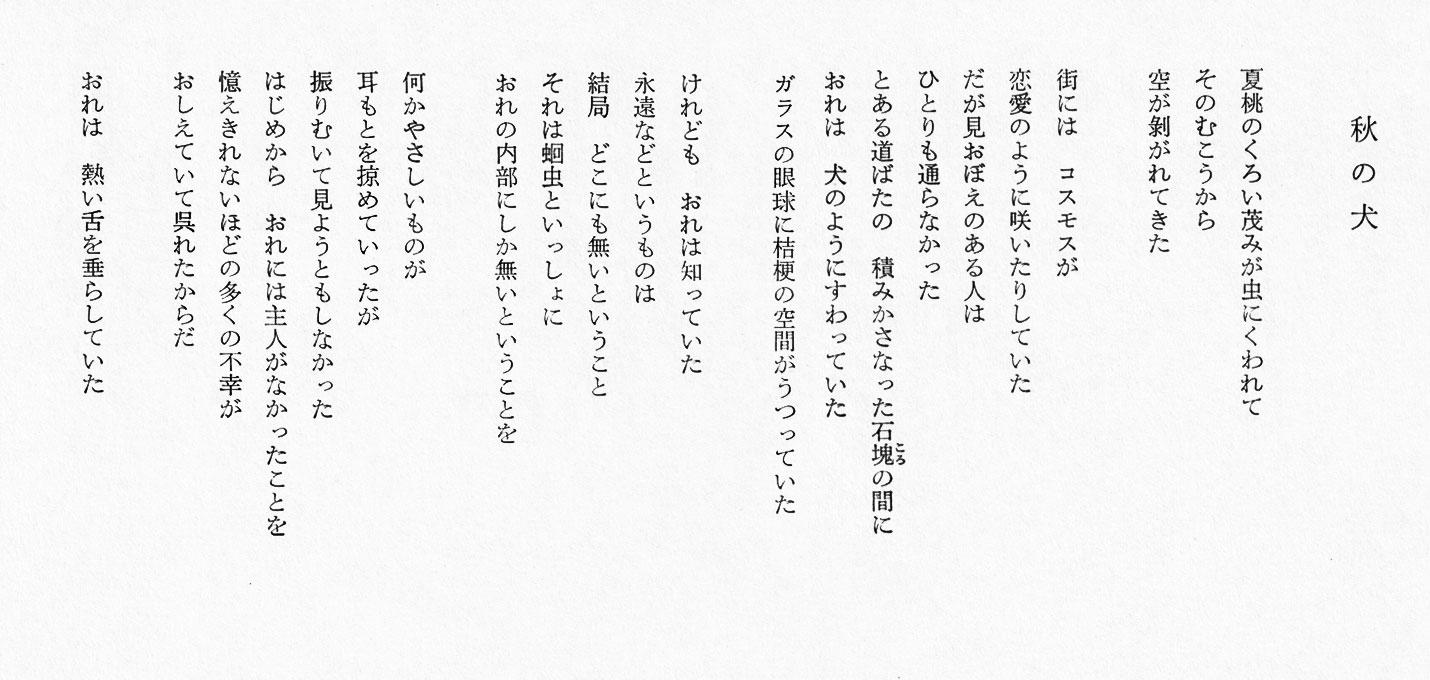 秋の犬
夏桃のくろい茂みが虫にくわれて
そのむこうから
空が剝がれてきた
街には　コスモスが
恋愛のように咲いたりしていた
だが見おぼえのある人は
ひとりも通らなかった
とある道ばたの　積みかさなった石塊の間に
ころ
おれは　犬のようにすわっていた
ガラスの眼球に桔梗の空間がうつっていた
けれども　おれは知っていた
永遠などというものは
結局　どこにも無いということ
それは蛔虫といっしょに
おれの内部にしか無いということを
何かやさしいものが
耳もとを掠めていったが
振りむいて見ようともしなかった
はじめから　おれには主人がなかったことを
憶えきれないほどの多くの不幸が
おしえていて呉れたからだ
おれは　熱い舌を垂らしていた